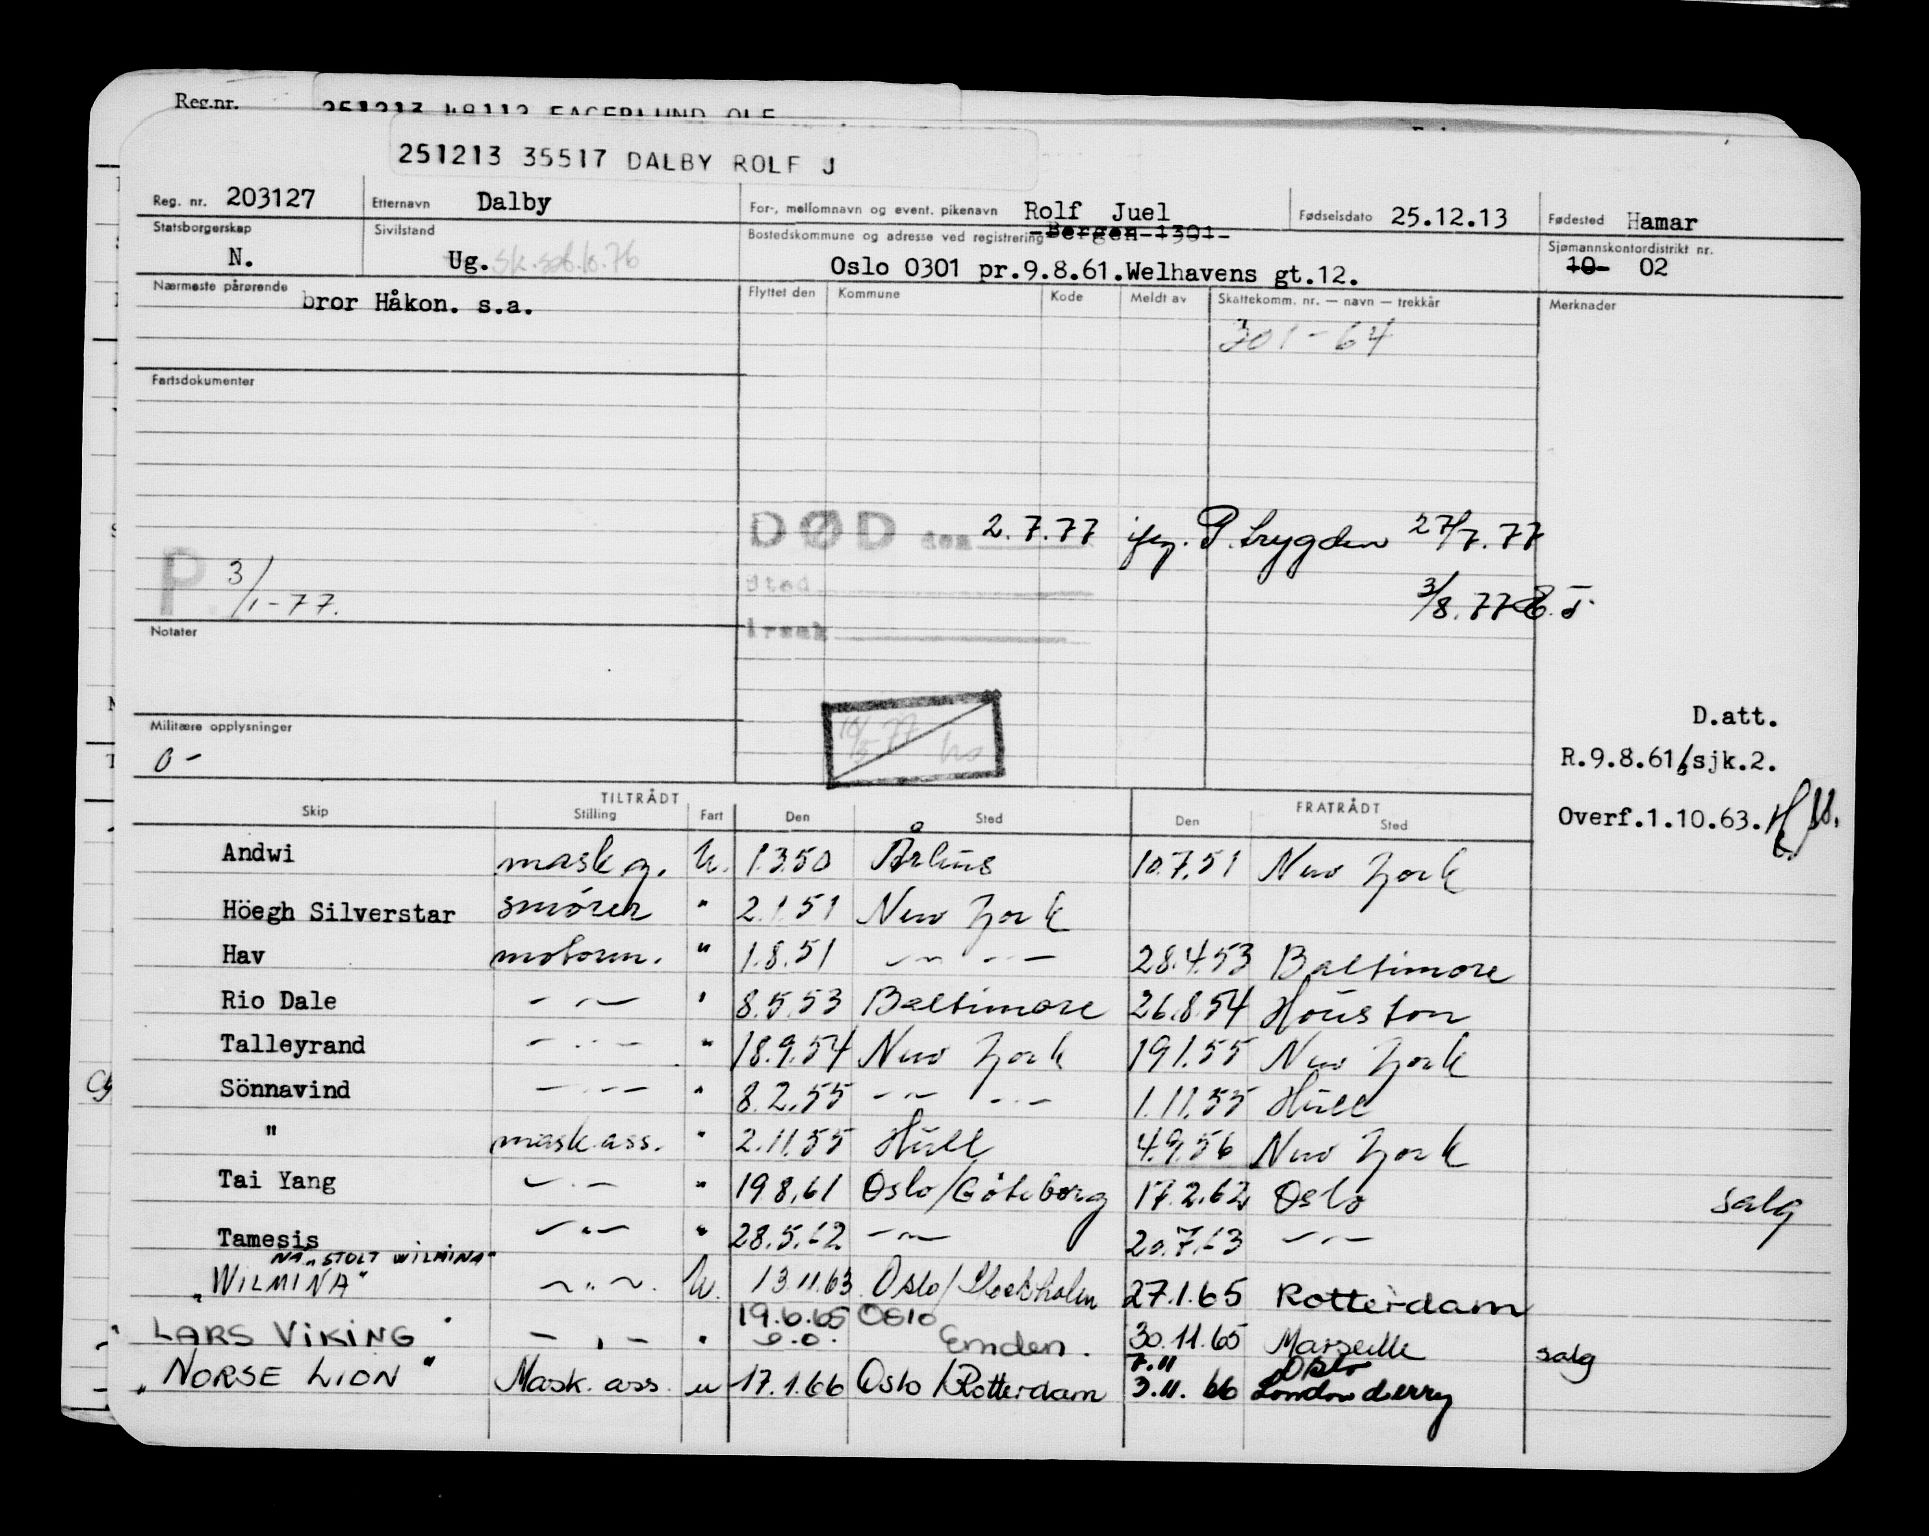 Reg.nr. 251213 48112 FAGERLUND OLE
251213 35517 DALBY ROLF J
Reg. nr. 203127 Etternavn Dalby For-, mellomnavn og event. pikenavn Rolf Juel Fødselsdato 25.12.13 Fødested Hamar
Statsborgerskap N. Sivilstand Ug. Sk.sep.10.76 Bostedskommune og adresse ved registrering Bergen 1301 Sjømannskontordistrikt nr. 10 02
Oslo 0301 pr.9.8.61.Welhavens gt.12.
Nærmeste pårørende bror Håkon. s.a. Flyttet den Kommune Kode Meldt av Skattekomm. nr. — navn — trekkår Merknader
301-64
Fartsdokumenter
DØD den 2.7.77 P. Lrygden 27/7.77
P. 3/1-77. Sted 3/8.77
Notater Årsak
Militære opplysninger
0-
D.att.
R.9.8.61/sjk.2.
Overf.1.10.63.
TILTRÅDT FRATRÅDT
Skip Stilling Fart Den Sted Den Sted
Andwi mask g. U. 1.3.50 Århus 10.7.51 New York
Höegh Silverstar smører " 2.1.51 New York
Hav motorm. " 1.8.51 — " — 28.4.53 Baltimore
Rio Dale — " — " 8.5.53 Baltimore 26.8.54 Houston
Talleyrand — " — " 18.9.54 New York 19.1.55 New York
Sönnavind — " — " 8.2.55 — " — 1.11.55 Hull
" mask.ass. " 2.11.55 Hull 4.9.56 New York
Tai Yang — " — " 19.8.61 Oslo/Göteborg 17.2.62 Oslo salg
Tamesis — " — " 28.5.62 — " — 20.7.63 — " —
NÅ "STOLT WILMINA"
"WILMINA" — " — U. 13.11.63 Oslo/Stockholm 27.1.65 Rotterdam
19.6.65 Oslo
LARS VIKING — " — " Emden. 30.11.65 Marseille salg
7.11 Oslo
"NORSE LION" Mask. ass. u 17.1.66 Oslo/Rotterdam 3.11.66 Londonderry